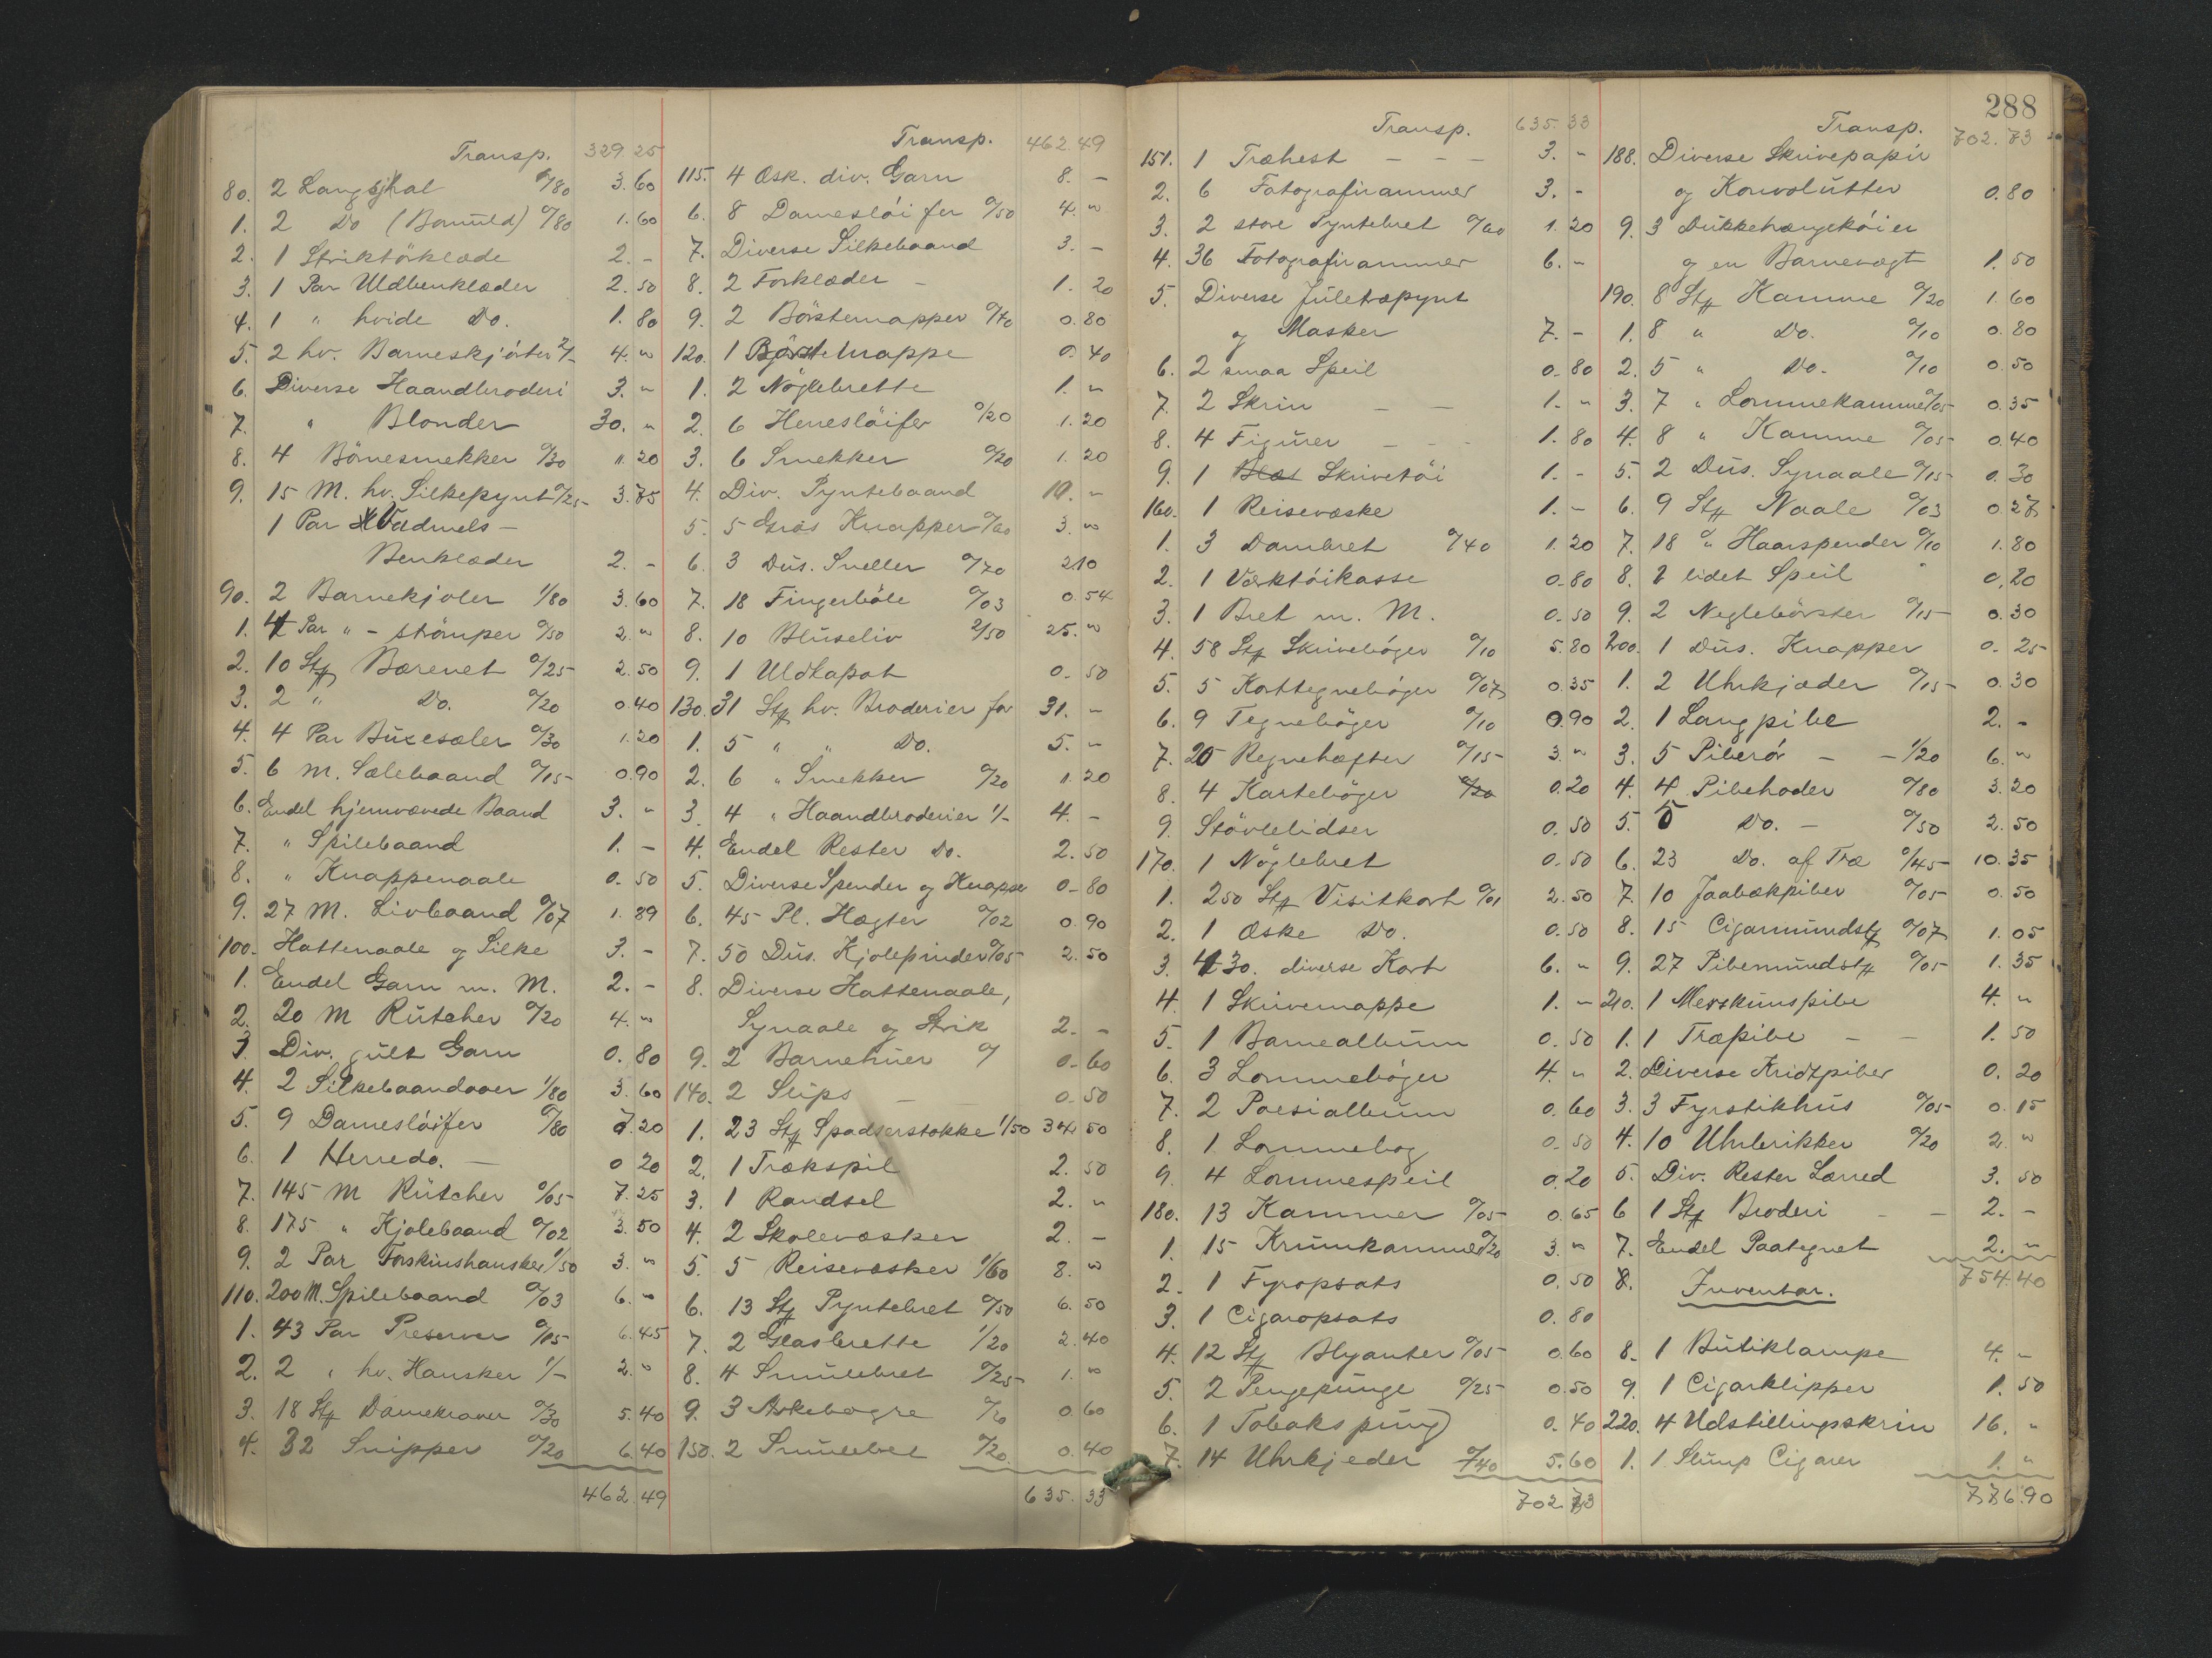 Transp. 329.25
80. 2 Langsjhal 1/80 3.60
1. 2 Do (Bomuld) 0/80 1.60
2. 1 Striktörklæde 2.-
3. 1 Par Uldbenklæder 2.50
4. 1 " hvide Do. 1.80
5. 2 hv. Barneskjörter 2/- 4."
6. Diverse Haandbroderi 3."
7. " Blonder 30."
8. 4 Börnesmekker 0/30 1.20
9. 15 M. hv. Silkepynt 0/25 3.75
1 Par Vadmels-
Benklæder 2.-
90. 2 Barnekjoler 1/80 3.60
1. 4 Par " - strömper 0/50 2."
2. 10 Stk Bærenet 0/25 2.50
3. 2 " Do. 0/20 0.40
4. 4 Par Buxesæler 0/30 1.20
5. 6 m. Sælebaand 0/15 0.90
6. Endel hjemvævede Baand 3."
7. " Spilebaand 1.-
8. " Knappenaale 0.50
9. 27 M. Livbaand 0/07 1.89
100. Hattenaale og Silke 3.-
1. Endel Garn m. M. 2.-
2. 20 M Rütcher 0/20 4."
3. Div. gült Garn 0.80
4. 2 Silkebaandover 1/80 3.60
5. 9 Damesløifer 0/80 7.20
6. 1 Herredo. - 0.20
7. 145 M Rütcher 0/05 7.25
8. 175 " Kjolebaand 0/02 3.50
9. 2 Par Forskinshansker 1/50 3."
110. 200 M. Spilebaand 0/03 6."
1. 43 Par Preserver 0/15 6.45
2. 2 " hv. Hansker 1/- 2."
3. 18 Stk Damekraver 0/30 5.40
4. 32 Snipper 0/20 6.40
462.49
Transp. 462.49
115. 4 Æsk. div. Garn 8.-
6. 8 Damesløifer 0/50 4."
7. Diverse Silkebaand 3.-
8. 2 Forklæder - 1.20
9. 2 Börstemapper 0/40 0.80
120. 1 Börstemappe 0.40
1. 2 Nöglebrette 1."
2. 6 Herresløifer 0/20 1.20
3. 6 Smekker 0/20 1.20
4. Div. Pyntebaand 10.-
5. 5 Gros Knapper 0/60 3."
6. 3 Düs. Sneller 0/70 2.10
7. 18 Fingerbøle 0/03 0.54
8. 10 Blüseliv 2/50 25."
9. 1 Uldkapot 0.50
130. 31 Stk hv. Broderier for 31.-
1. 5 " " Do. 5.-
2. 6 " Smekker 0/20 1.20
3. 4 " Haandbroderier 1/- 4.-
4. Endel Rester Do. 2.50
5. Diverse Spender og Knapper 0-80
6. 45 Pl. Hægter 0/02 0.90
7. 50 Düs. Kjolepinder 0/05 2.50
8. Diverse Hattenaale,
Synaale og Strik 2.-
9. 2 Barnehüer 0/ 0-60
140. 2 Slips - - 0.50
1. 23 Stk Spadserstokke 1/50 34.50
2. 1 Trækspil 2.50
3. 1 Randsel 2."
4. 2 Skolevæsker 2.-
5. 5 Reisevæsker 1/60 8."
6. 13 Stk Pyntebret 0/50 6.50
7. 2 Glasbrette 1/20 2.40
8. 4 Smülebret 0/25 1."
9. 3 Askebægre 0/20 0.60
150. 2 Smülebret 0/20 0.40
635.33
288
Transp. 635.33
151. 1 Træhest - - - 3.-
2. 6 Fotografirammer 3.-
3. 2 store Pyntebret 0/60 1.20
4. 36 Fotografirammer 6.-
5. Diverse Jületræpynt
og Masker 7.-
6. 2 smaa Speil 0.80
7. 2 Skrin - - 1."
8. 4 Figürer - - - 1.80
9. 1 Skrivetöi 1.-
160. 1 Reisevæske 1.-
1. 3 Dambret 0/40 1.20
2. 1 Værktöikasse 0.80
3. 1 Bret m. M. 0.50
4. 58 Stk Skrivebøger 0/10 5.80
5. 5 Korttegnebøger 0/07 0.35
6. 9 Tegnebøger 0/10 0.90
7. 20 Regnehæfter 0/15 3."
8. 4 Kartebøger 0/20 0.20
9. Stövlelidser 0.50
170. 1 Nöglebret 0.50
1. 250 Stk Visitkort 0/01 2.50
2. 1 Æske Do. 0.50
3. 430. diverse Kort 6."
4. 1 Skrivemappe 1."
5. 1 Barnealbum 0.50
6. 3 Lommebøger 4."
7. 2 Poesialbum 0.60
8. 1 Lommebog 0.50
9. 4 Lommespeil 0.20
180. 13 Kammer 0/05 0.65
1. 15 Krumkamme 0/20 3."
2. 1 Fyropsats 0.50
3. 1 Cigaropsats 0.80
4. 12 Stk Blyanter 0/05 0.60
5. 2 Pengepünge 0/25 0.50
6. 1 Tobakspüng 0.40
7. 14 Uhrkjeder 0/40 5.60
702.73
Transp. 702.73
188. Diverse Skrivepapir
og Konvolutter 0.80
9. 3 Dükkehængekøier
og en Barnevogt 1.50
190. 8 Stk Kamme 0/20 1.60
1. 8 " Do. 0/10 0.80
2. 5 " Do. 0/10 0.50
3. 7 " Lommekamme 0/05 0.35
4. 8 " Kamme 0/05 0.40
5. 2 Düs. Synaale 0/15 0.30
6. 9 Stk Naale 0/03 0.27
7. 18 " Haarspender 0/10 1.80
8. 1 lidet Speil " 0.20
9. 2 Neglebörster 0/15 0.30
200. 1 Düs. Knapper 0.25
1. 2 Uhrkjæder 0/15 0.30
2. 1 Langpibe 2.-
3. 5 Piberör - - 1/20 6."
4. 4 Pibehoder 0/80 3.20
5. 5 Do. - 0/50 2.50
6. 23 Do. af Træ 0/45 10.35
7. 10 Jaabækpiber 0/05 0.50
8. 15 Cigarmundstk 0/07 1.05
9. 27 Pibemundstk 0/05 1.35
210. 1 Merskumspibe 4."
1. 1 Træpibe - - 1.50
2. Diverse Kridtpiber 0.20
3. 3 Fyrstikhus 0/05 0.15
4. 10 Uhrbrikker 0/20 2."
5. Div. Rester Lærred 3.50
6 1 Stk Broderi - - 2.-
7. Endel Paategnet 2."
754.40
8. Inventar.
8. 1 Bütiklampe 4.-
9. 1 Cigarklipper 1.50
220. 4 Udstillingsskrin 16."
1. 1 Slump Cigarer 1."
776.90